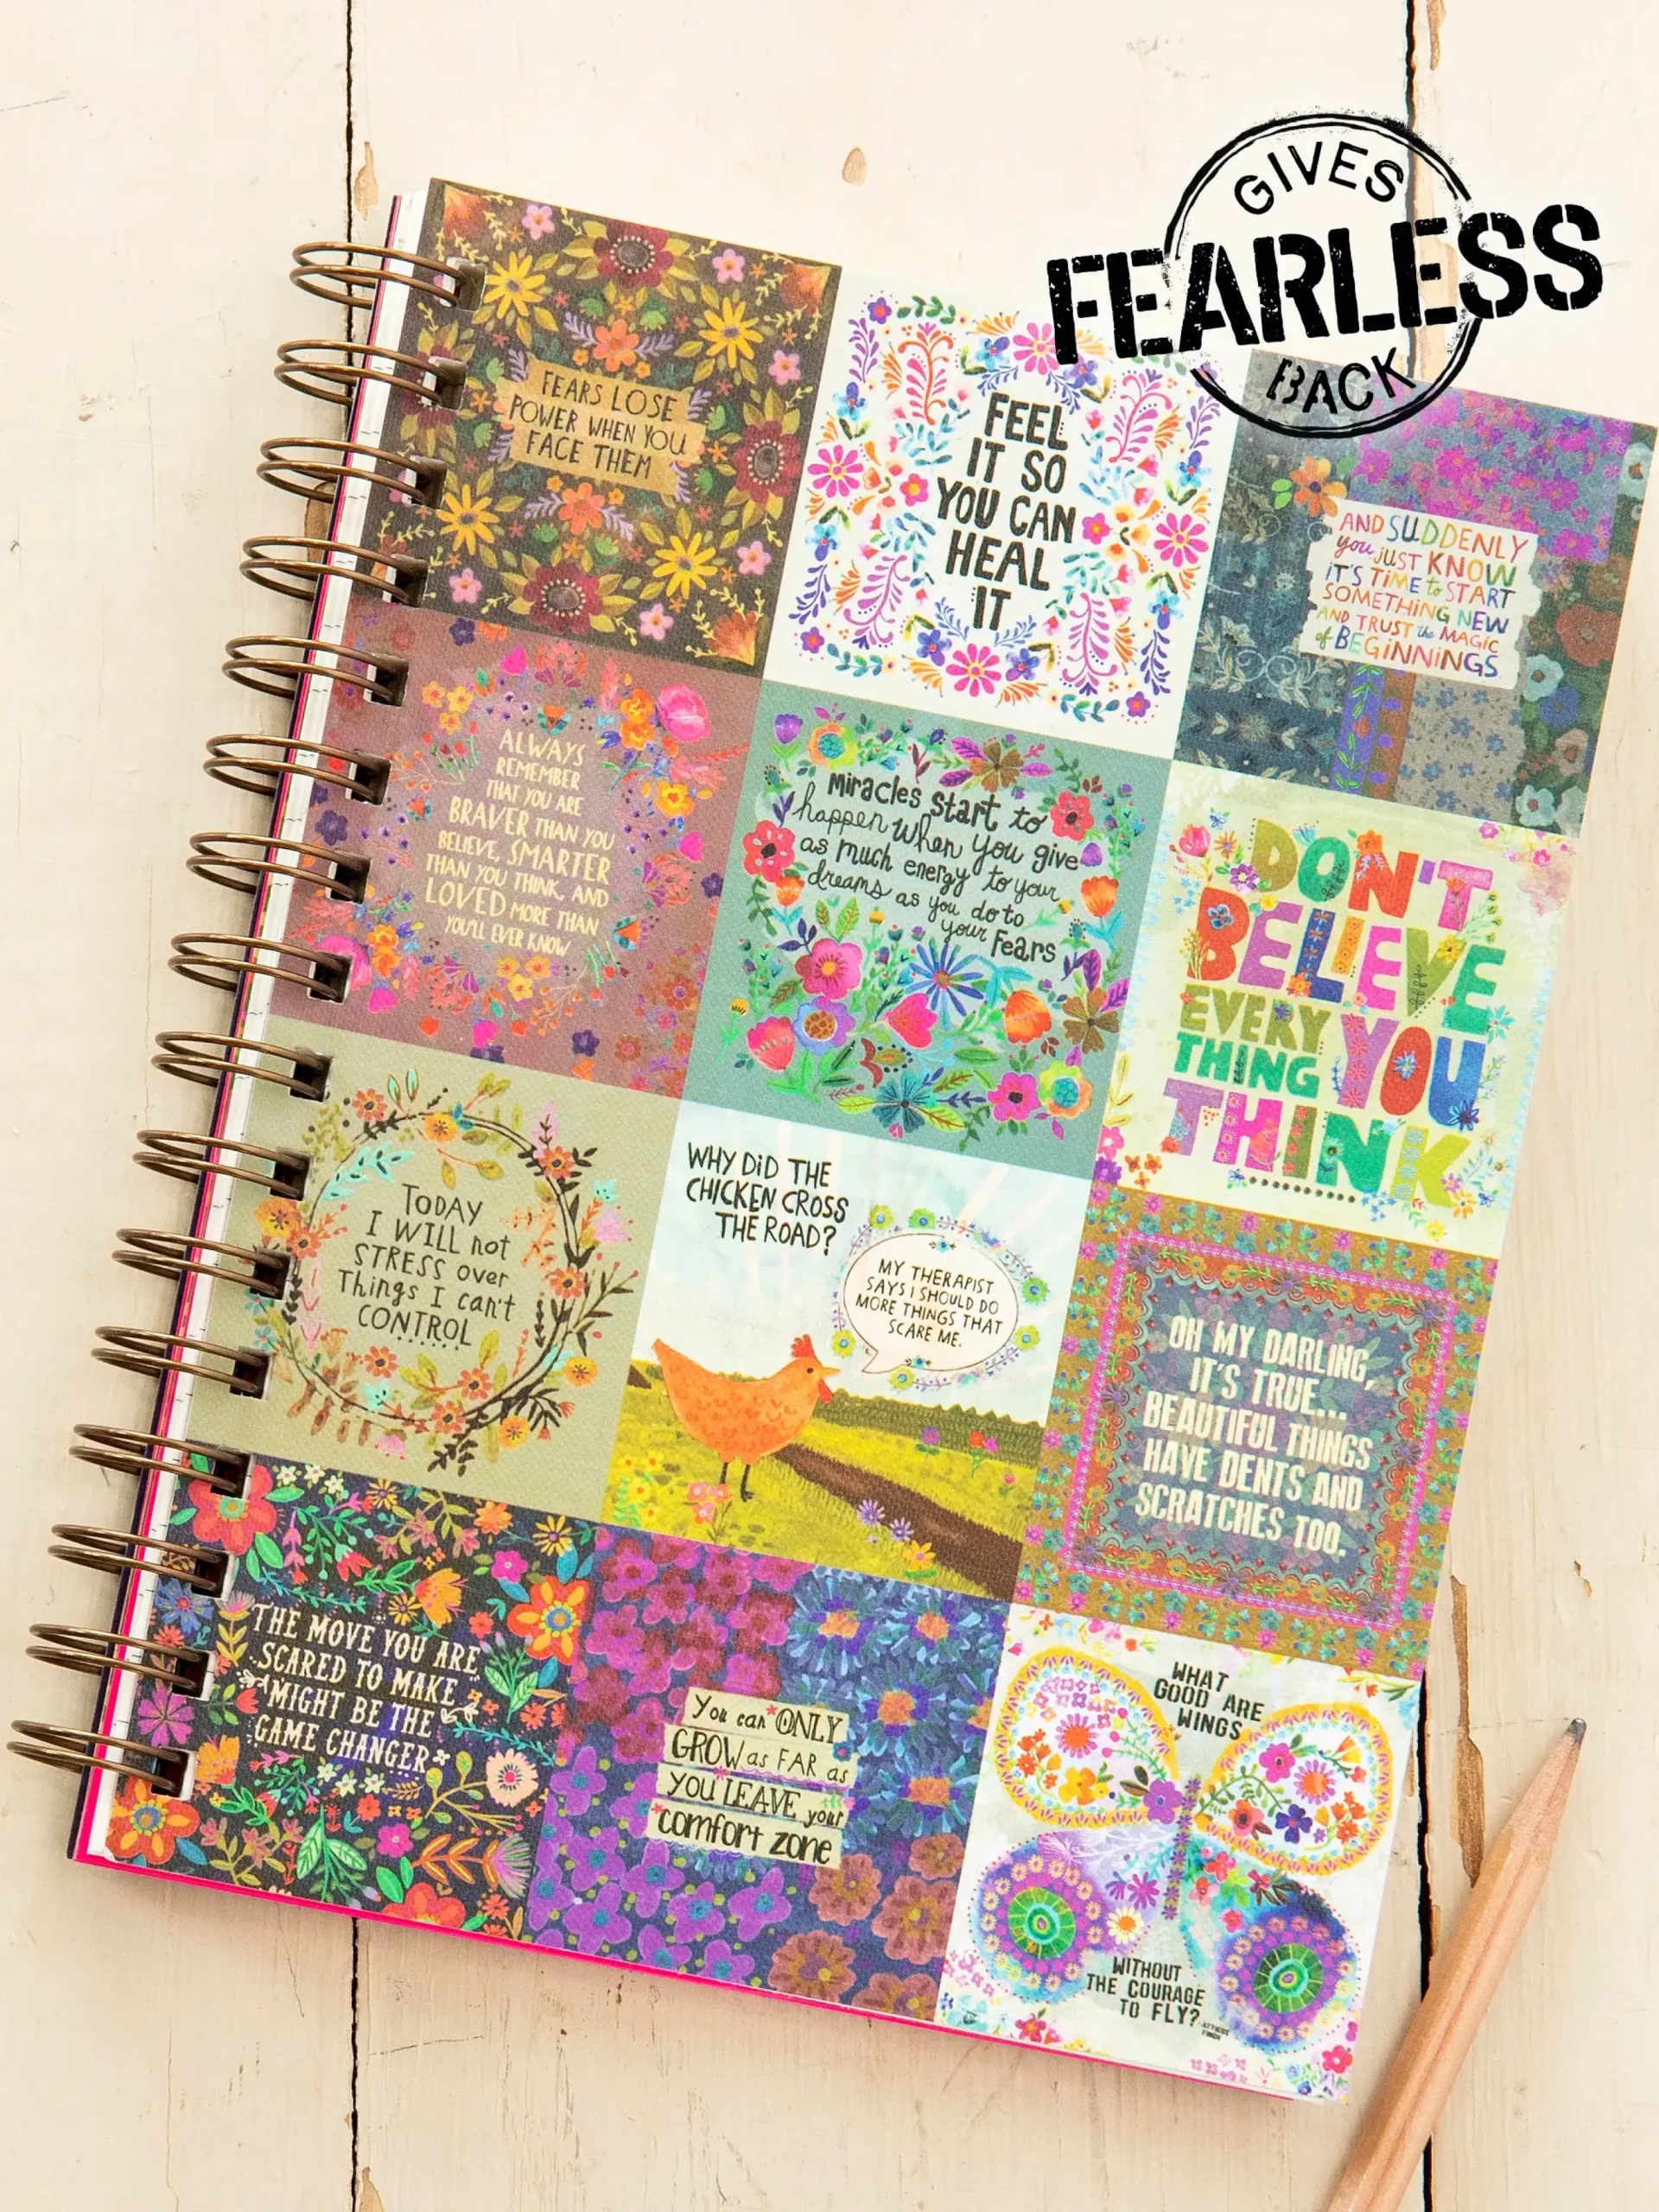 GIVES
FEARLESS
BACK
FEARS LOSE
POWER WHEN YOU
FACE THEM
FEEL
IT SO
YOU CAN
HEAL
IT
AND SUDDENLY
you JUST KNOW
IT'S TIME to START
SOMETHING NEW
AND TRUST the MAGIC
of BEGINNINGS
ALWAYS
REMEMBER
THAT YOU ARE
BRAVER THAN YOU
BELIEVE, SMARTER
THAN YOU THINK, AND
LOVED MORE THAN
YOU'LL EVER KNOW
Miracles Start to
happen when you give
as much energy to your
dreams as you do to
your Fears
DON'T
BELIEVE
EVERY
THING YOU
THINK
TODAY
I WILL not
STRESS over
Things I can't
CONTROL
WHY DID THE
CHICKEN CROSS
THE ROAD?
MY THERAPIST
SAYS I SHOULD DO
MORE THINGS THAT
SCARE ME.
OH MY DARLING,
IT'S TRUE...
BEAUTIFUL THINGS
HAVE DENTS AND
SCRATCHES TOO.
THE MOVE YOU ARE
SCARED TO MAKE
MIGHT BE THE
GAME CHANGER
You can ONLY
GROW as FAR as
you LEAVE your
comfort zone
WHAT
GOOD ARE
WINGS
WITHOUT
THE COURAGE
TO FLY?
-ATTICUS
FINCH